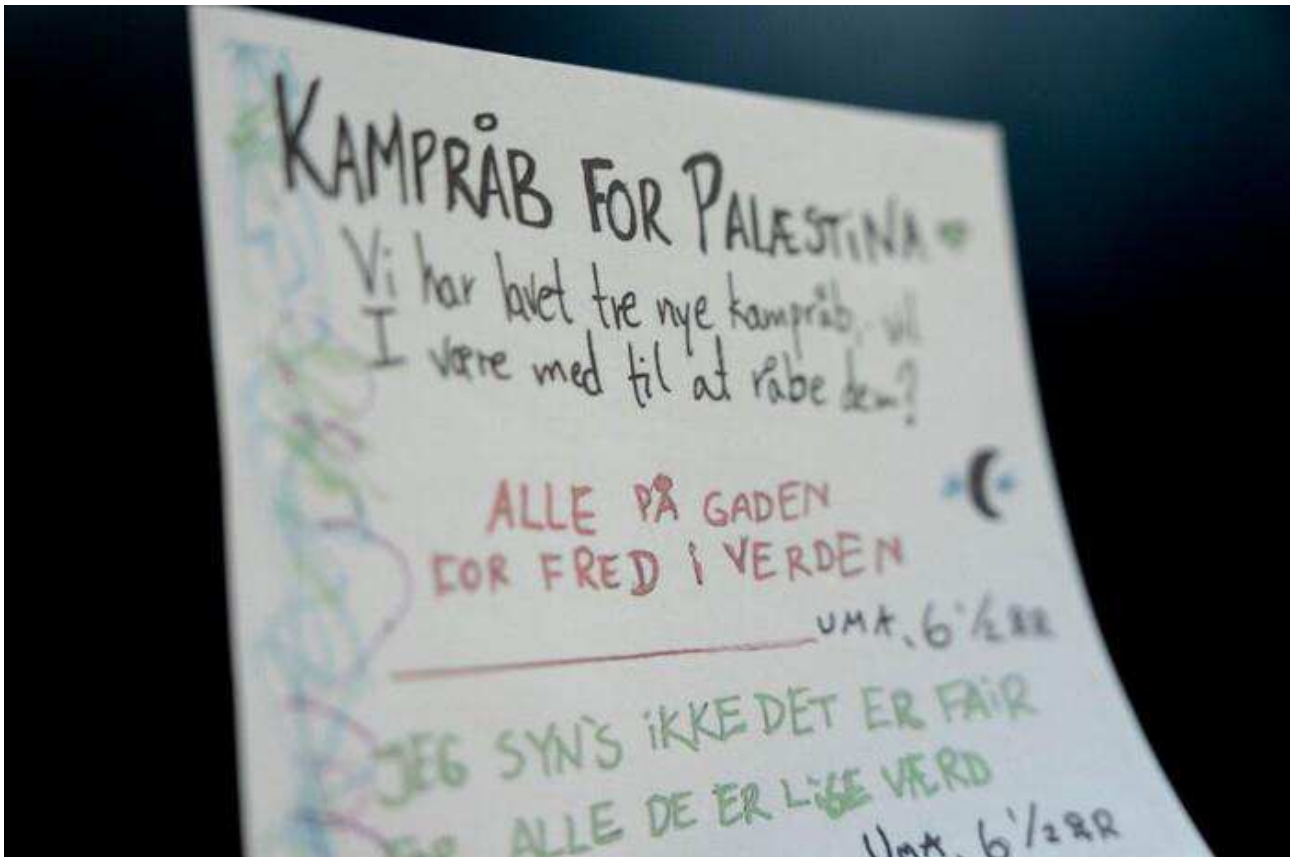 KAMPRÅB FOR PALÆSTINA
Vi har lavet tre nye kampråb, vil
I være med til at råbe dem?
ALLE PÅ GADEN
FOR FRED i VERDEN
UMA, 6 1/2 ÅR
JEG SYN'S iKKE DET ER FAiR
FOR ALLE DE ER LiGE VÆRD
UMA, 6 1/2 ÅR